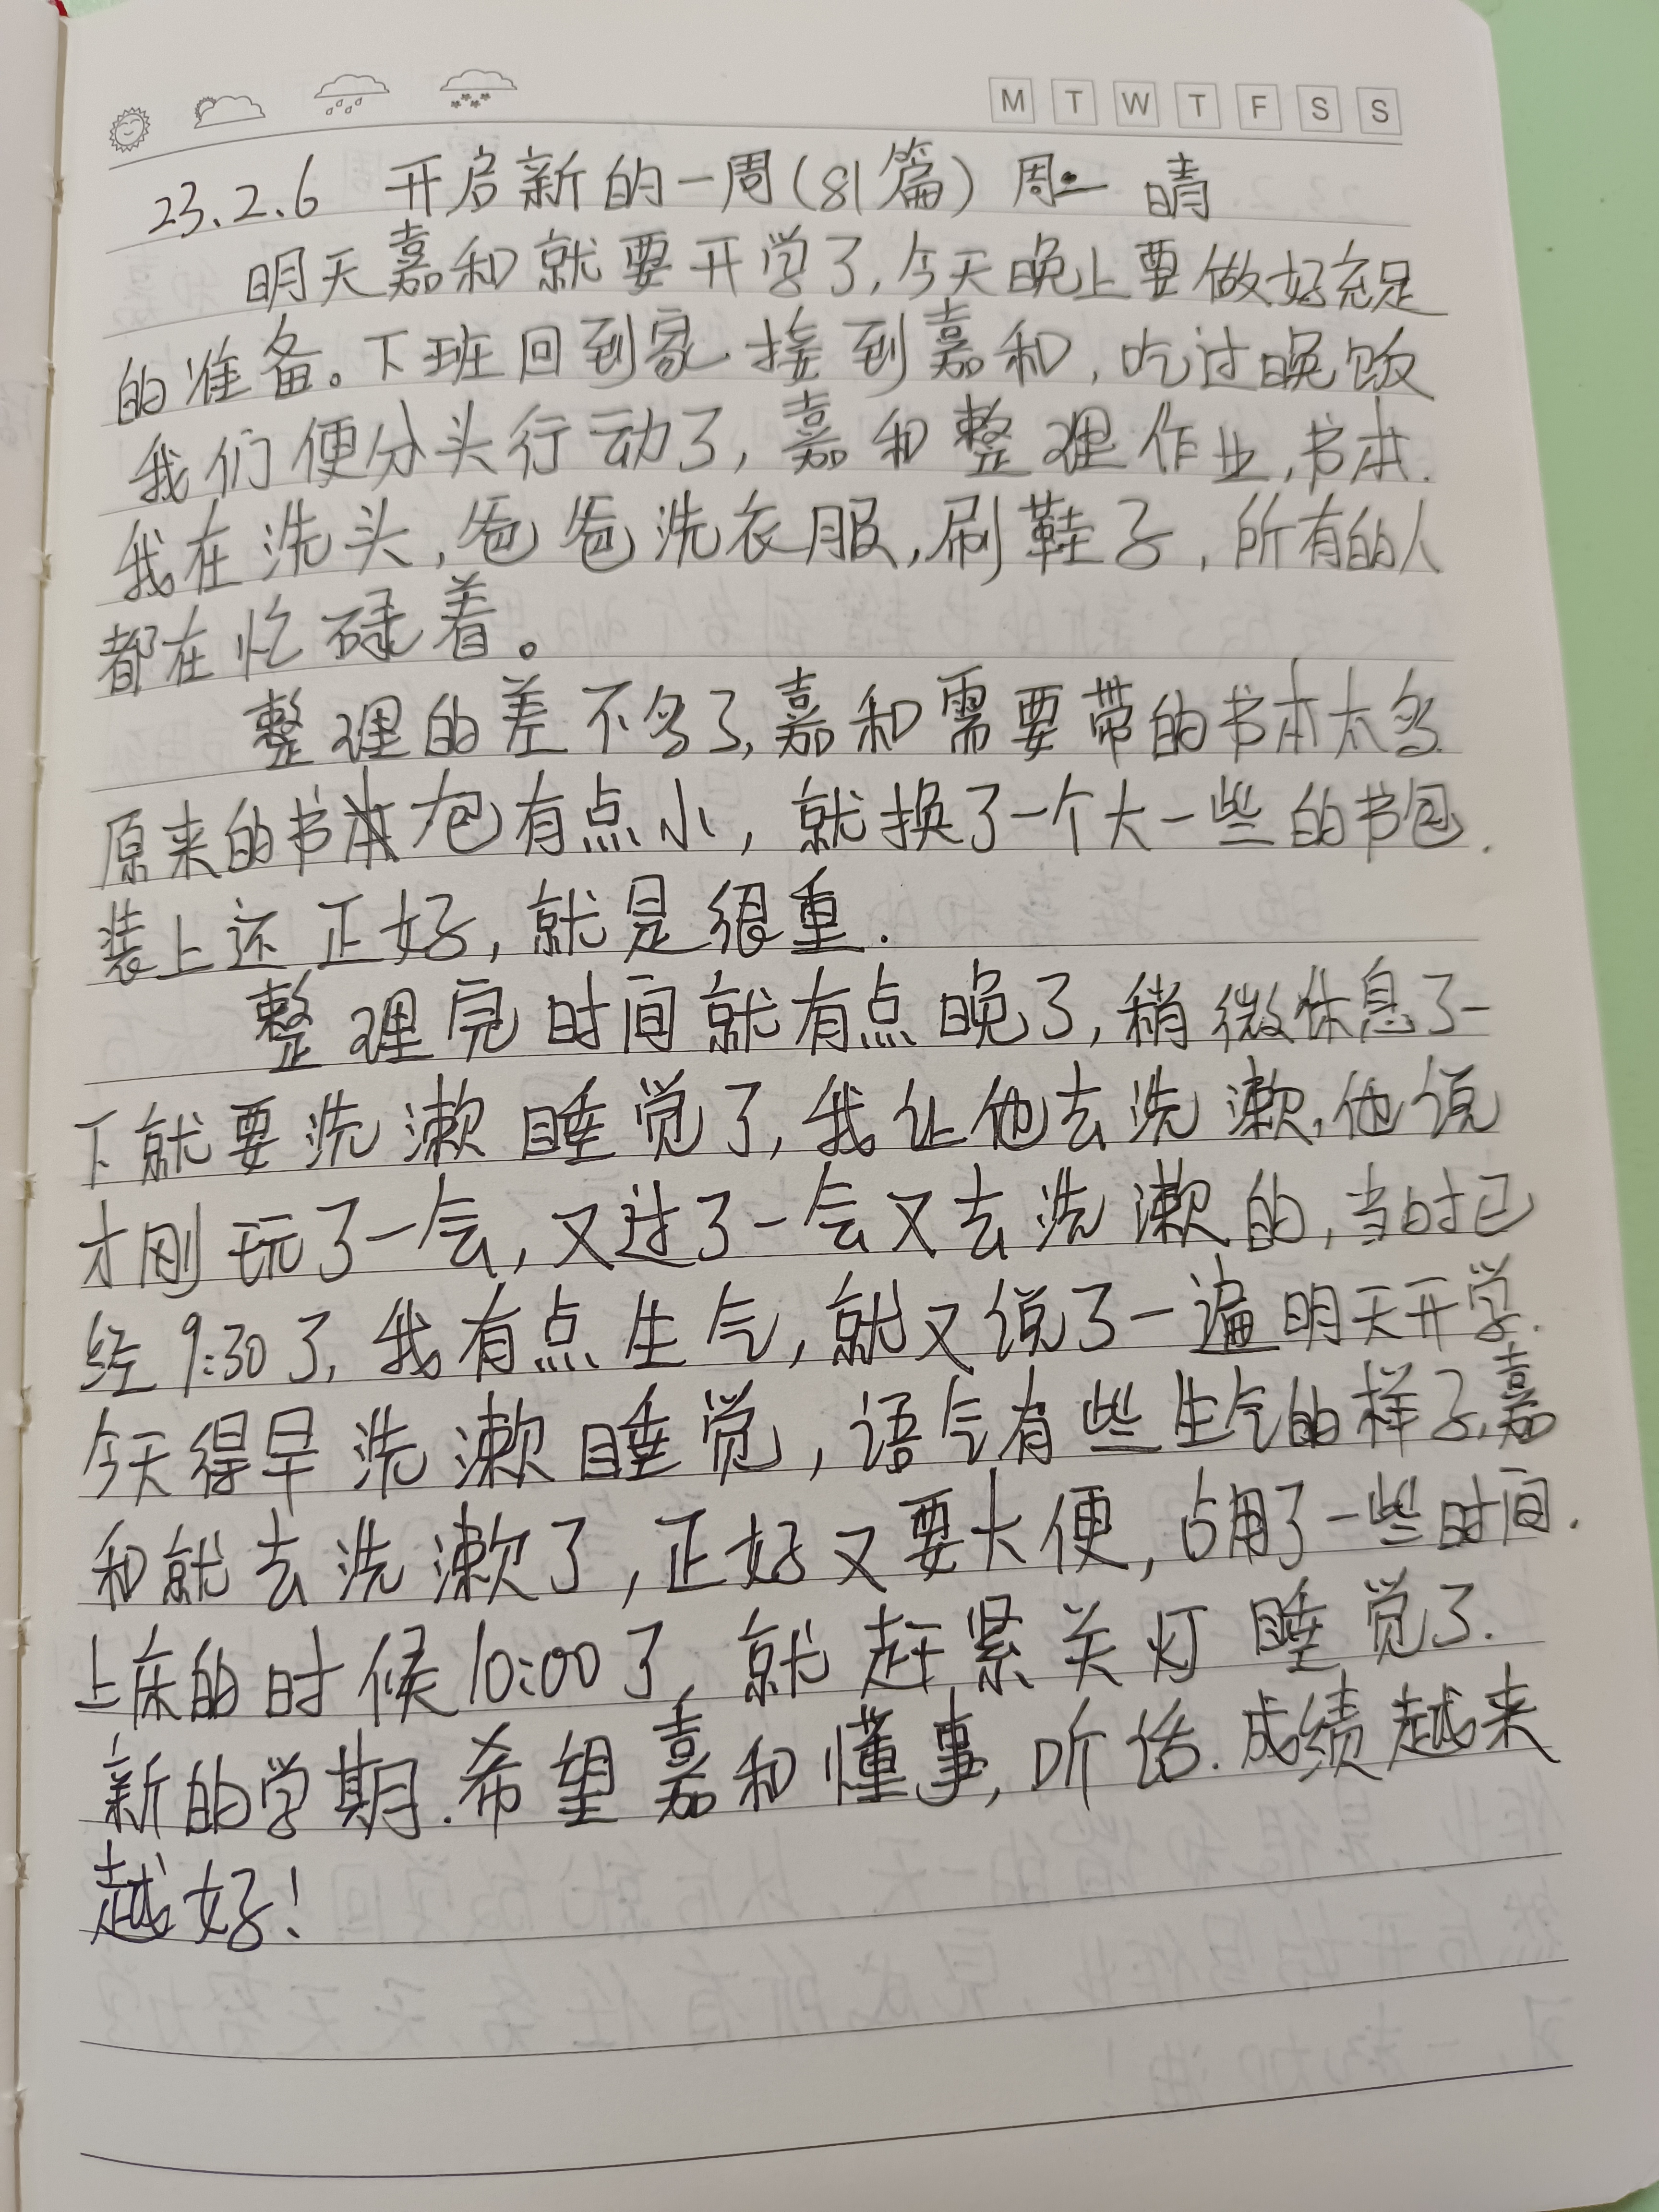 M T W T F S S
23.2.6 开启新的一周(81篇) 周一 晴
明天嘉和就要开学了,今天晚上要做好充足
的准备。下班回到家接到嘉和,吃过晚饭
我们便分头行动了,嘉和整理作业,书本.
我在洗头,爸爸洗衣服,刷鞋子,所有的人
都在忙碌着。
整理的差不多了,嘉和需要带的书本太多.
原来的书包有点小,就换了一个大一些的书包.
装上还正好,就是很重.
整理完时间就有点晚了,稍微休息了一
下就要洗漱睡觉了,我让他去洗漱,他说
才刚玩了一会,又过了一会又去洗漱的,当时已
经9:30了,我有点生气,就又说了一遍明天开学.
今天得早洗漱睡觉,语气有些生气的样子,嘉
和就去洗漱了,正好又要大便,占用了一些时间.
上床的时候10:00了,就赶紧关灯睡觉了.
新的学期.希望嘉和懂事,听话.成绩越来
越好!